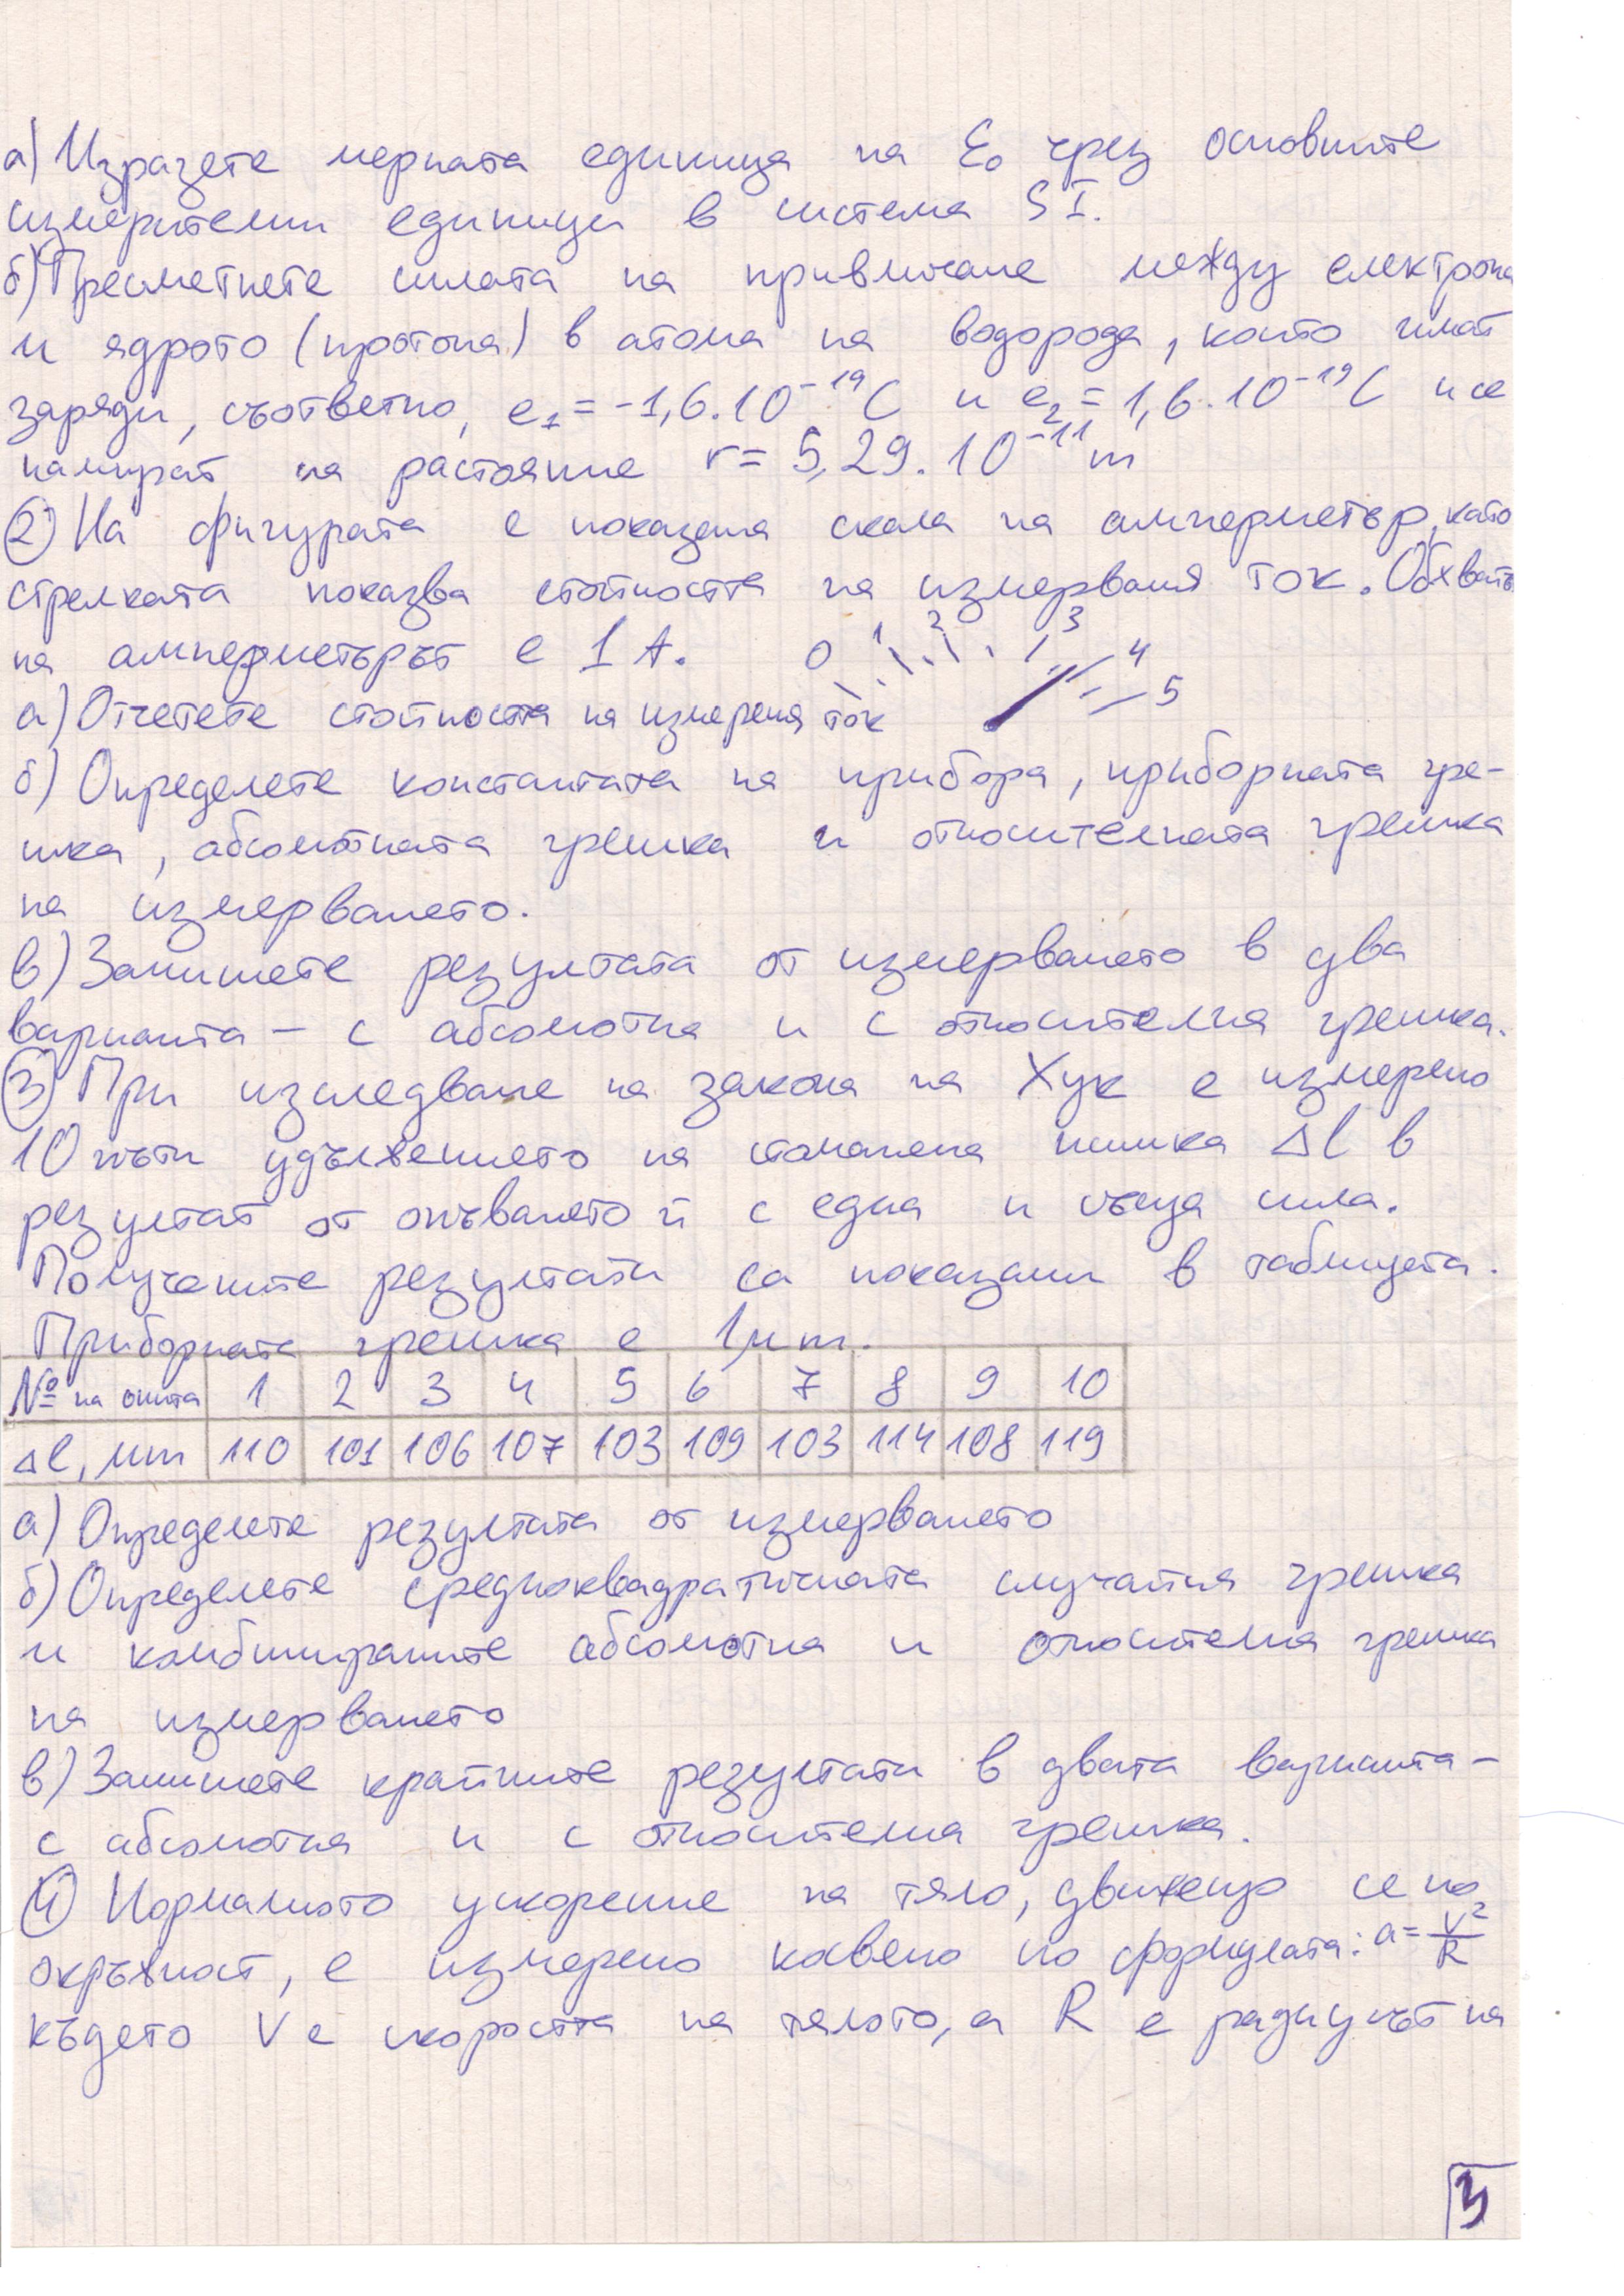 а) Изразете мерната единица на ε₀ чрез основните
измерителни единици в система SI.
б) Пресметнете силата на привличане между електрона
и ядрото (протона) в атома на водорода, които имат
заряди, съответно, e₁ = -1,6.10⁻¹⁹C и e₂ = 1,6.10⁻¹⁹C и се
намират на растояние r = 5,29.10⁻¹¹ m
② На фигурата е показана скала на амперметър, като
стрелката показва стойността на измервания ток. Обхватът
на амперметърът е 1 A. 0 1 2 3 4 5
а) Отчетете стойността на измерения ток
б) Определете константата на прибора, приборната гре-
шка, абсолютната грешка и относителната грешка
на измерването.
в) Запишете резултата от измерването в два
варианта - с абсолютна и с относителна грешка.
③ При изследване на закона на Хук е измерено
10 пъти удължението на стоманена нишка Δl в
резултат от опъването ѝ с една и съща сила.
Получените резултати са показани в таблицета.
Приборната грешка е 1μm.
№ на опита 1 2 3 4 5 6 7 8 9 10
Δl, μm 110 101 106 107 103 109 103 114 108 119
а) Определете резултата от измерването
б) Определете средноквадратичната случайна грешка
и комбинираните абсолютна и относителна грешка
на измерването
в) Запишете крайните резултати в двата варианта -
с абсолютна и с относителна грешка.
④ Нормалното ускорение на тяло, движещо се по
окръжност, е измерено косвено по формулата: a = V²/R
където V е скоростта на тялото, а R е радиусът на
3